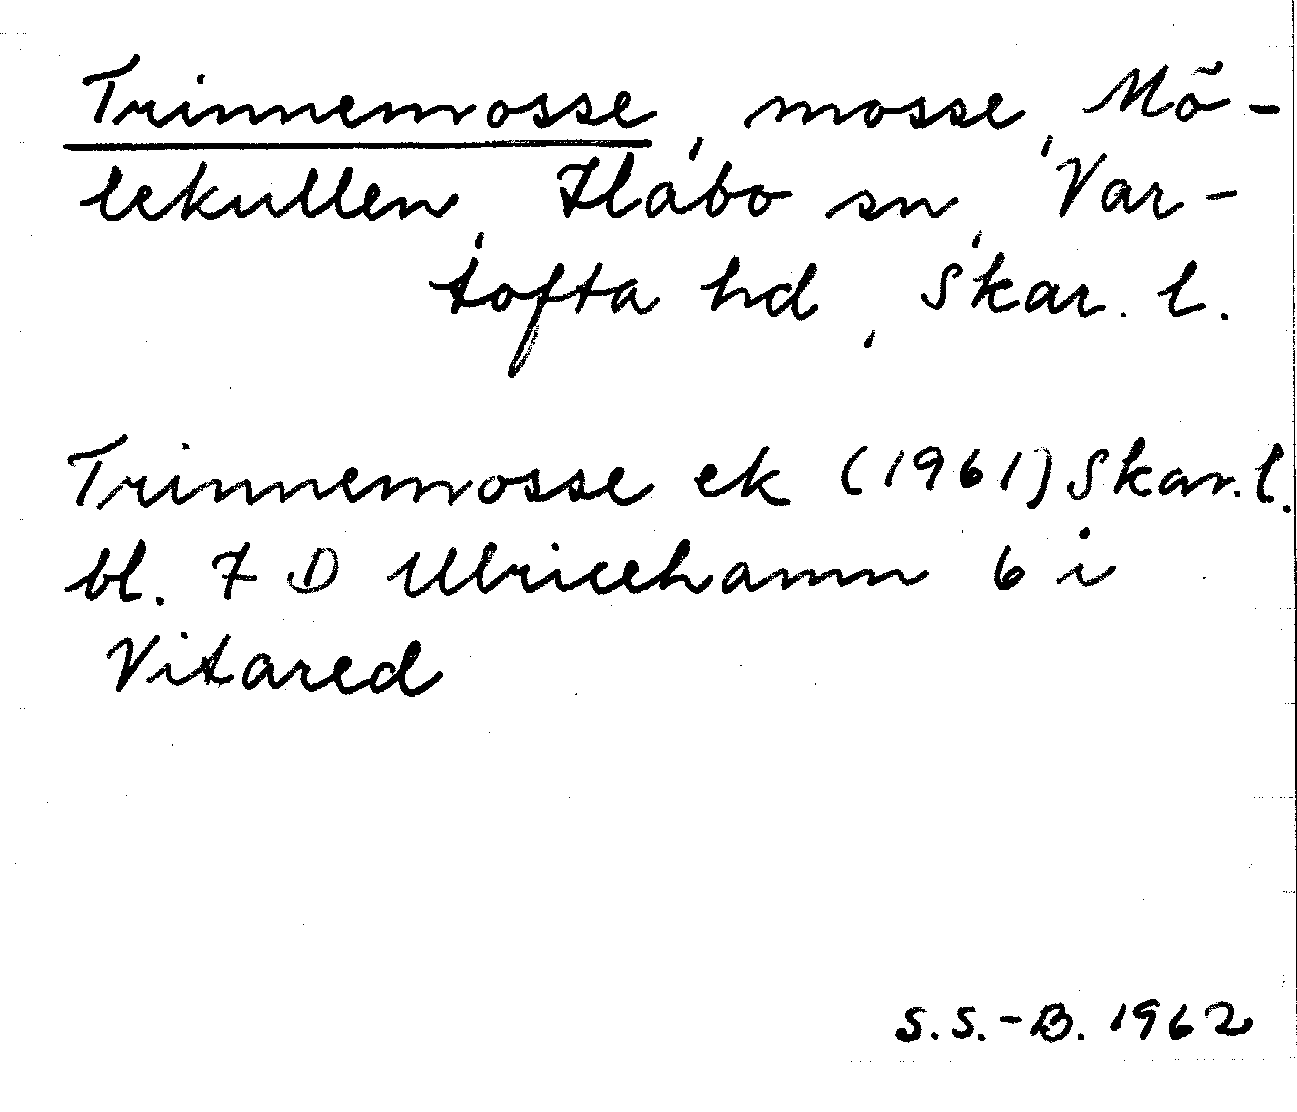 Trinnemosse, mosse, Mö-
lekullen, Habo sn, Var-
tofta hd, Skar. l.
Trinnemosse ek (1961) Skar. l.
bl. 7 D Ulricehamn 6 i
Vitared
S. S.-B. 1962